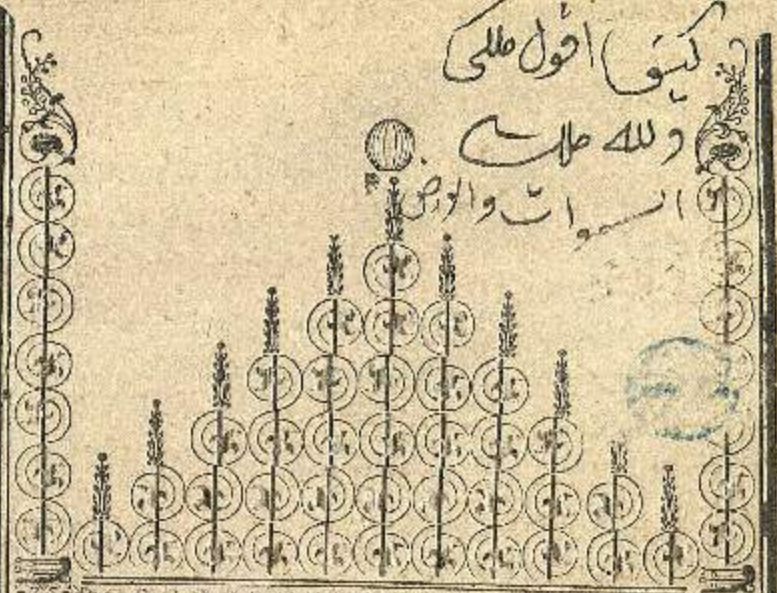 كيف اقول ملكي
ولله ملك
السموات والارض